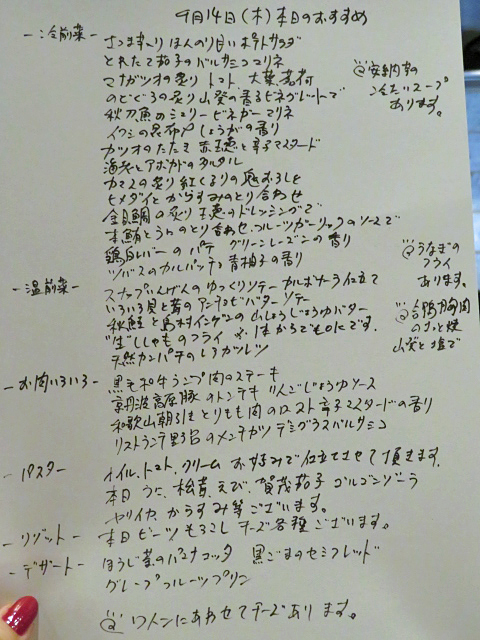 9月14日(木)本日のおすすめ
-冷前菜-
さつまもっこり ほんのり甘いポテトサラダ
とれたて茄子のバルサミコマリネ
マナガツオの炙り トマト 大葉茗荷
のどぐろの炙り山葵の香るビネグレットで
秋刀魚のシェリービネガーマリネ
イワシの昆布〆しょうがの香り
カツオのたたき 玉葱と辛子マスタード
海老とアボカドのタルタル
カマスの炙り 紅くるりの鬼おろしを
ヒメダイとからすみのとり合わせ
金目鯛の炙り 玉葱のドレッシングで
本鮪とうにのとり合わせ フルーツガーリックのソースで
鶏白レバーのパテ グリーンレーズンの香り
ツバスのカルパッチョ 青柚子の香り
@安納芋の
冷たいスープ
あります。
-温前菜-
スナップいんげんのゆっくりソテー カルボナーラ仕立て
いろいろ貝と茸のアンチョビバターソテー
秋鮭と島村インゲンの山しょうゆバター
"生"ししゃものフライ
天然カンパチのレアカツレツ
@うなぎの
フライ
あります。
@合鴨胸肉
山葵と塩で
-お肉いろいろ-
黒毛和牛ランプ肉のステーキ
京丹波高原豚のトンテキ りんごじょうゆソース
和歌山朝引きとりもも肉のロースト 辛子マスタードの香り
リストランテ野呂のメンチカツ デミグラスバルサミコ
-パスタ-
オイル、トマト、クリーム お好みで仕立てさせて頂きます。
本日 うに、松茸、えび、賀茂茄子 ゴルゴンゾーラ
ヤリイカ、からすみ等ございます。
-リゾット-
本日 ビーツ もろこし チーズ各種ございます。
-デザート-
ほうじ茶のパンナコッタ 黒ごまのセミフレッド
グレープフルーツプリン
@ワインにあわせてチーズあります。